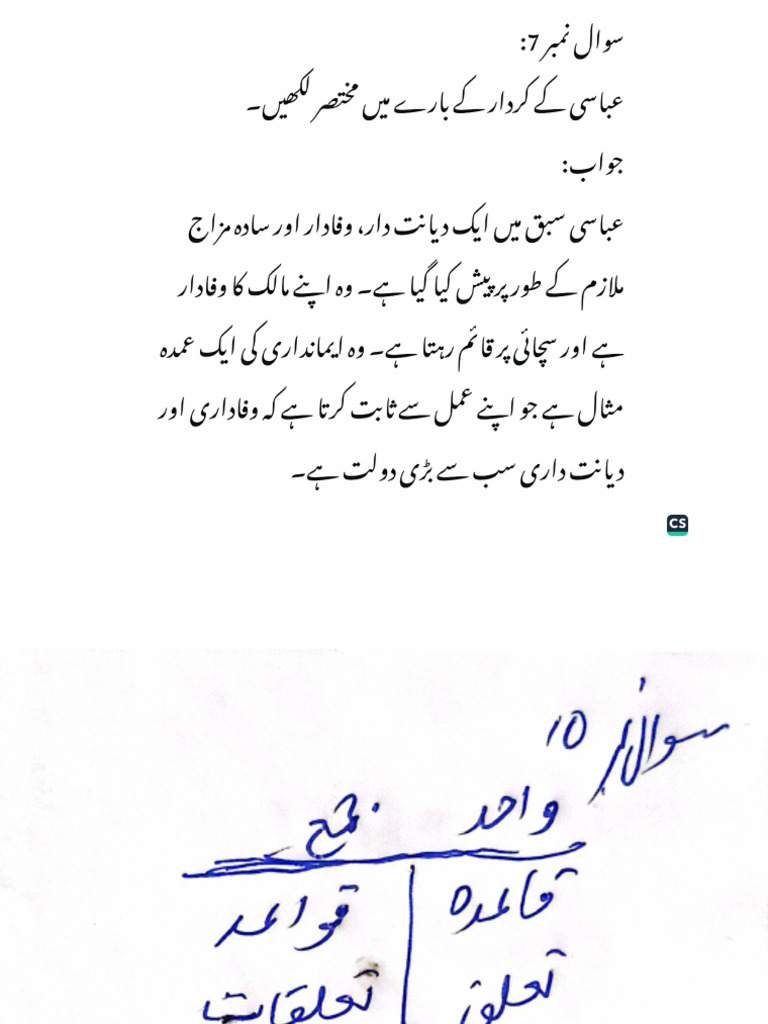 سوال نمبر 7:
عباسی کے کردار کے بارے میں مختصر لکھیں۔
جواب:
عباسی سبق میں ایک دیانت دار، وفادار اور سادہ مزاج
ملازم کے طور پر پیش کیا گیا ہے۔ وہ اپنے مالک کا وفادار
ہے اور سچائی پر قائم رہتا ہے۔ وہ ایمانداری کی ایک عمدہ
مثال ہے جو اپنے عمل سے ثابت کرتا ہے کہ وفاداری اور
دیانت داری سب سے بڑی دولت ہے۔
CS
سوال نمبر 10
واحد جمع
قاعدہ قواعد
تعلق تعلقات